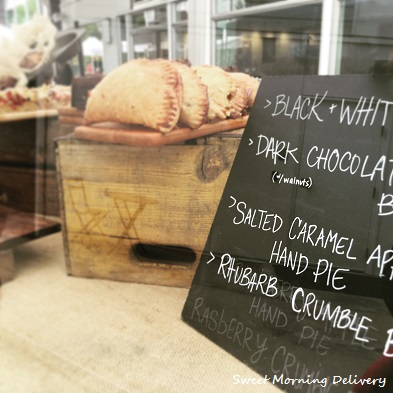 > BLACK + WHIT
> DARK CHOCOLAT
(w/walnuts) B
> SALTED CARAMEL AP
HAND PIE
> RHUBARB CRUMBLE B
HAND
PIE
RASBERRY CRUM
Sweet Morning Delivery